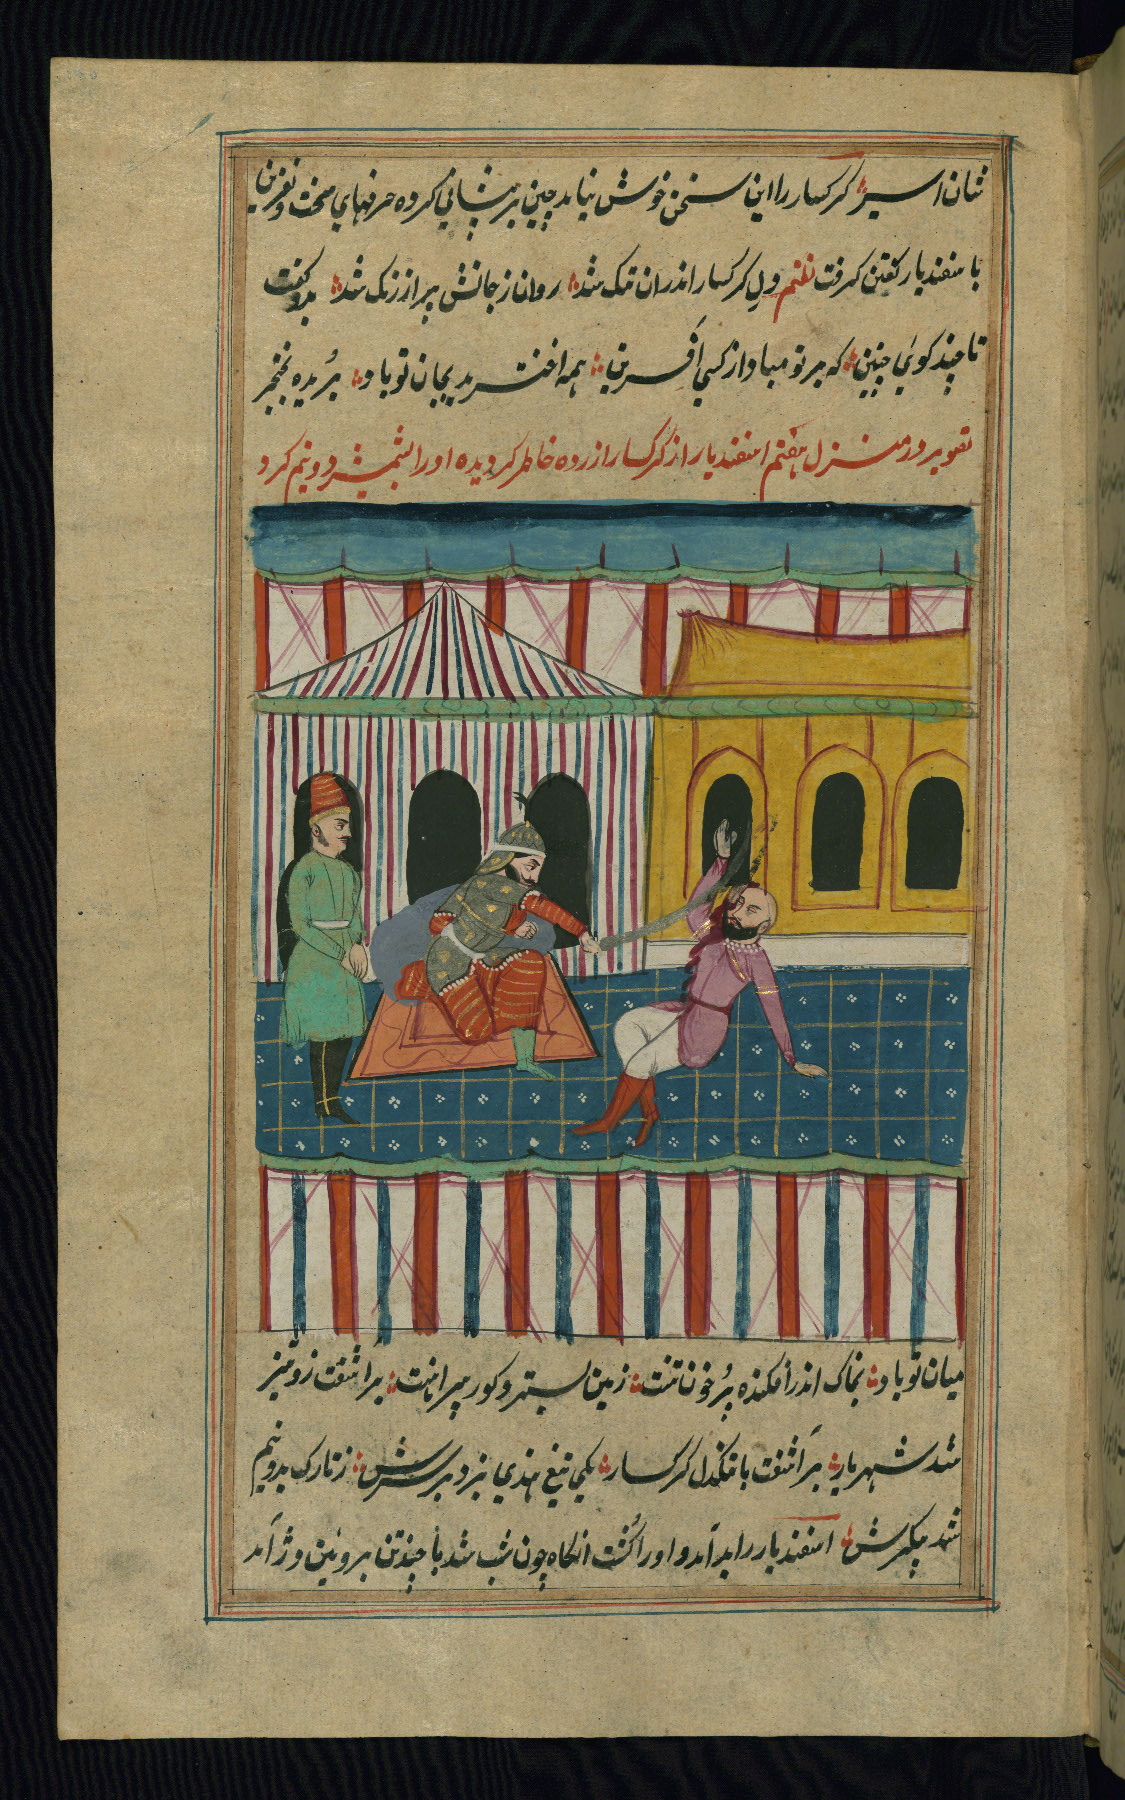 شان اسیر گرگسار را این سخن خوش نیامد چین بر پیشانی کرده حرفهای سخت و نفرین
باسفندیار گفتن گرفت نظم دل گرگسار اندران تنک شد روان و زجانش پر از زنک شد بدو گفت
تا چند گوئی چنین که بر تو مباد از کسی آفرین همه اختر بد بجان تو باد بُریده بخنجر
تصویر در منزل هفتم اسفندیار از گرگسار ازرده خاطر گردیده او را بشمشیر دو نیم کرد
میان تو باد بخاک اندر افکنده پُر خون تنت زمین بستر و گور پیراهنت برآشفت زو تیز
شد شهریار برآشفت با تنگدل گرگسار یکی تیغ هندی بزد بر سرش ز تارک بدو نیم
شد پیکرش اسفندیار را بد آمد و او را کُشت انگاه چون شب شد با چند تن بروئین دژ آمد